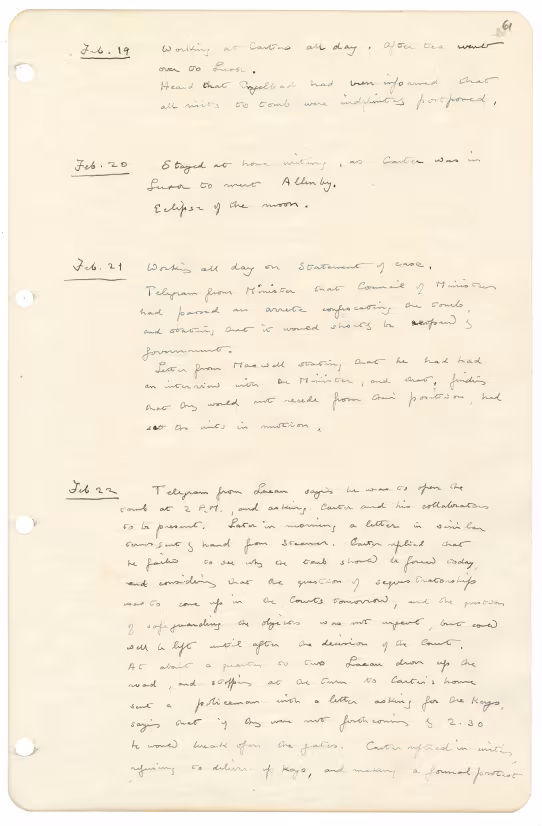 61
Feb. 19 Working at Carters all day. After tea went
over to Luxor.
Heard that Engelbach had been informed that
all visits to tomb were indefinitely postponed.
Feb. 20 Stayed at home writing, as Carter was in
Luxor to meet Allenby.
Eclipse of the moon.
Feb. 21 Working all day on Statement of case.
Telegram from Minister that Council of Ministers
had passed an arrete confiscating the tomb,
and stating that it would shortly be reopened by
government.
Letter from Maxwell stating that he had had
an interview with the Minister, and that, finding
that they would not recede from their position, had
set the writs in motion.
Feb 22 Telegram from Lacau saying he was to open the
tomb at 2 P.M., and asking Carter and his collaborators
to be present. Later in morning a letter in similar
terms sent by hand from steamer. Carter replied that
he failed to see why the tomb should be forced today,
and considering that the question of sequestrationship
was to come up in the Courts tomorrow, and the question
of safeguarding the objects was not urgent, but could
well be left until after the decision of the Court.
At about a quarter to two Lacau drove up the
road, and stopping at the turn to Carter's house
sent a policeman with a letter asking for the keys,
saying that if they were not forthcoming by 2.30
he would break open the gates. Carter replied in writing,
refusing to deliver up keys, and making a formal protest